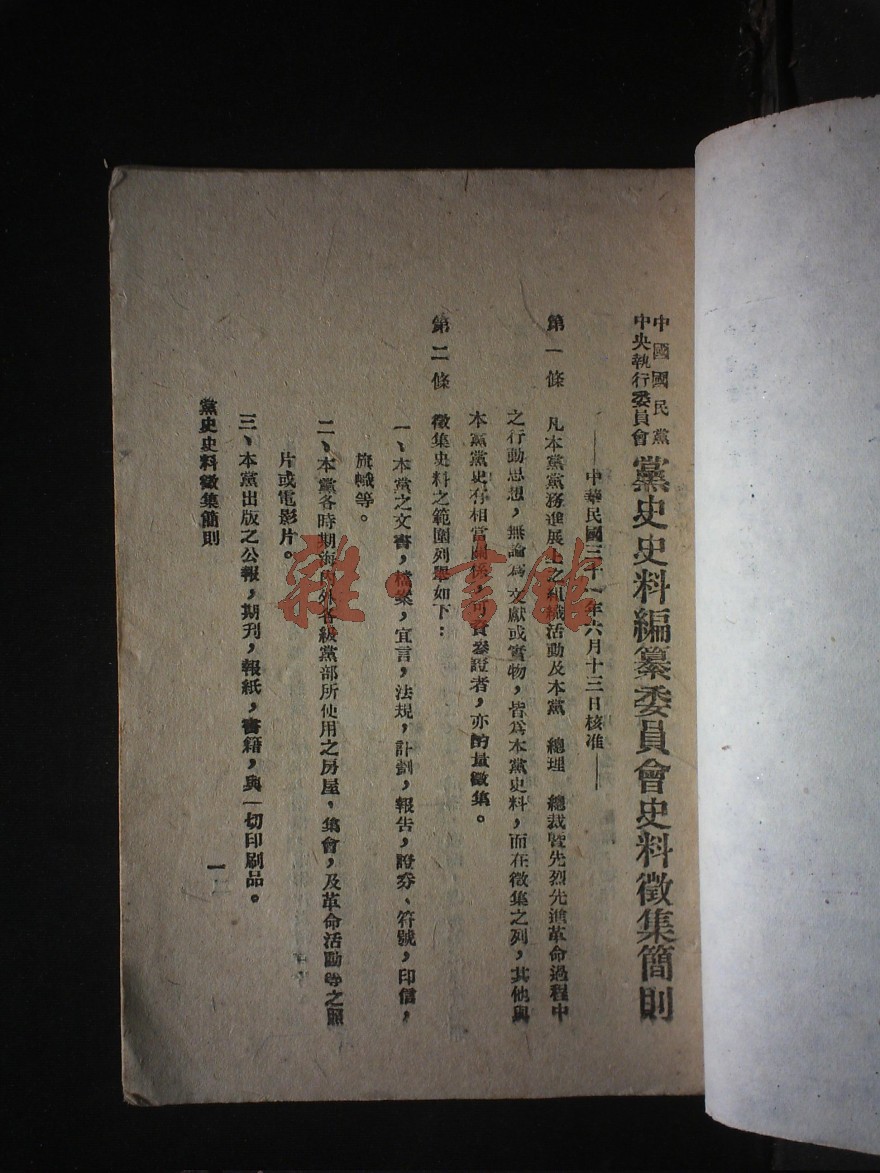 中國國民黨
中央執行委員會
黨史史料編纂委員會史料徵集簡則
——中華民國三十一年六月十三日核准——
第一條 凡本黨黨務進展上之組織活動及本黨 總理 總裁暨先烈先進革命過程中
之行動思想,無論為文獻或實物,皆為本黨史料,而在徵集之列,其他與
本黨黨史有相當關係,可資參證者,亦酌量徵集。
第二條 徵集史料之範圍列舉如下:
一、本黨之文書,檔案,宣言,法規,計劃,報告,證券、符號,印信,
旗幟等。
二、本黨各時期海內外各級黨部所使用之房屋,集會,及革命活動等之照
片或電影片。
三、本黨出版之公報,期刊,報紙,書籍,與一切印刷品。
黨史史料徵集簡則
一
雜·書館